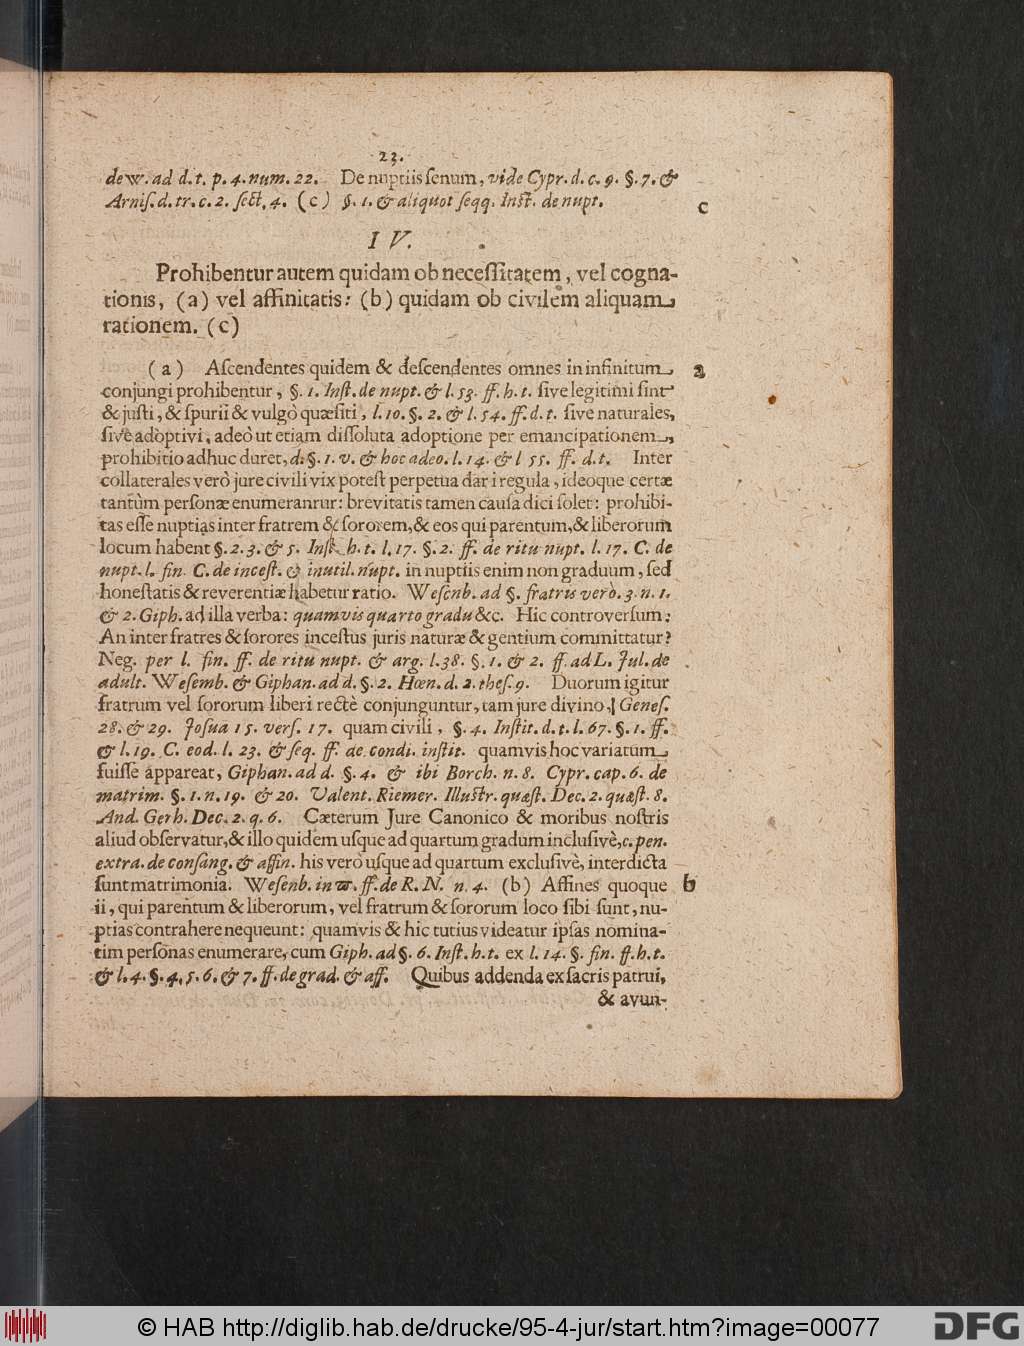 23.
dew. ad d. t. p. 4. num. 22. De nuptiis ſenum, vide Cypr. d. c. 9. §. 7. &
Arniſ. d. tr. c. 2. ſect. 4. (c) §. 1. & aliquot ſeqq. Inſt. de nupt.
c
IV.
Prohibentur autem quidam ob neceſſitatem, vel cogna-
tionis, (a) vel affinitatis: (b) quidam ob civilem aliquam
rationem. (c)
(a) Aſcendentes quidem & deſcendentes omnes in infinitum
a
conjungi prohibentur, §. 1. Inſt. de nupt. & l. 53. ff. h. t. ſive legitimi ſint
& juſti, & ſpurii & vulgò quæſiti, l. 10. §. 2. & l. 54. ff. d. t. ſive naturales,
ſive adoptivi, adeò ut etiam diſſoluta adoptione per emancipationem,
prohibitio adhuc duret, d. §. 1. v. & hoc adeo. l. 14. & l 55. ff. d. t. Inter
collaterales verò jure civili vix poteſt perpetua dari regula, ideoque certæ
tantùm perſonæ enumeranrur: brevitatis tamen cauſa dici ſolet: prohibi-
tas eſſe nuptias inter fratrem & ſororem, & eos qui parentum, & liberorum
locum habent §. 2. 3. & 5. Inſt. h. t. l. 17. §. 2. ff. de ritu nupt. l. 17. C. de
nupt. l. fin. C. de inceſt. & inutil. nupt. in nuptiis enim non graduum, ſed
honeſtatis & reverentiæ habetur ratio. Weſenb. ad §. fratris verò. 3. n. 1.
& 2. Giph. ad illa verba: quamvis quarto gradu &c. Hic controverſum:
An inter fratres & ſorores inceſtus juris naturæ & gentium committatur?
Neg. per l. fin. ff. de ritu nupt. & arg. l. 38. §. 1. & 2. ff. ad L. Jul. de
adult. Weſemb. & Giphan. ad d. §. 2. Hœn. d. 2. theſ. 9. Duorum igitur
fratrum vel ſororum liberi rectè conjunguntur, tam jure divino, Geneſ.
28. & 29. Joſua 15. verſ. 17. quam civili, §. 4. Inſtit. d. t. l. 67. §. 1. ff.
& l. 19. C. eod. l. 23. & ſeq. ff. de condi. inſtit. quamvis hoc variatum
fuiſſe appareat, Giphan. ad d. §. 4. & ibi Borch. n. 8. Cypr. cap. 6. de
matrim. §. 1. n. 19. & 20. Valent. Riemer. Illuſtr. quæſt. Dec. 2. quæſt. 8.
And. Gerh. Dec. 2. q. 6. Cæterum Jure Canonico & moribus noſtris
aliud obſervatur, & illo quidem uſque ad quartum gradum incluſivè, c. pen.
extra. de conſang. & affin. his verò uſque ad quartum excluſivè, interdicta
ſunt matrimonia. Weſenb. in ϖ. ff. de R. N. n. 4. (b) Affines quoque
b
ii, qui parentum & liberorum, vel fratrum & ſororum loco ſibi ſunt, nu-
ptias contrahere nequeunt: quamvis & hic tutius videatur ipſas nomina-
tim perſonas enumerare, cum Giph. ad §. 6. Inſt. h. t. ex l. 14. §. fin. ff. h. t.
& l. 4. §. 4. 5. 6. & 7. ff. de grad. & aff. Quibus addenda ex ſacris patrui,
& avun-
© HAB http://diglib.hab.de/drucke/95-4-jur/start.htm?image=00077
DFG